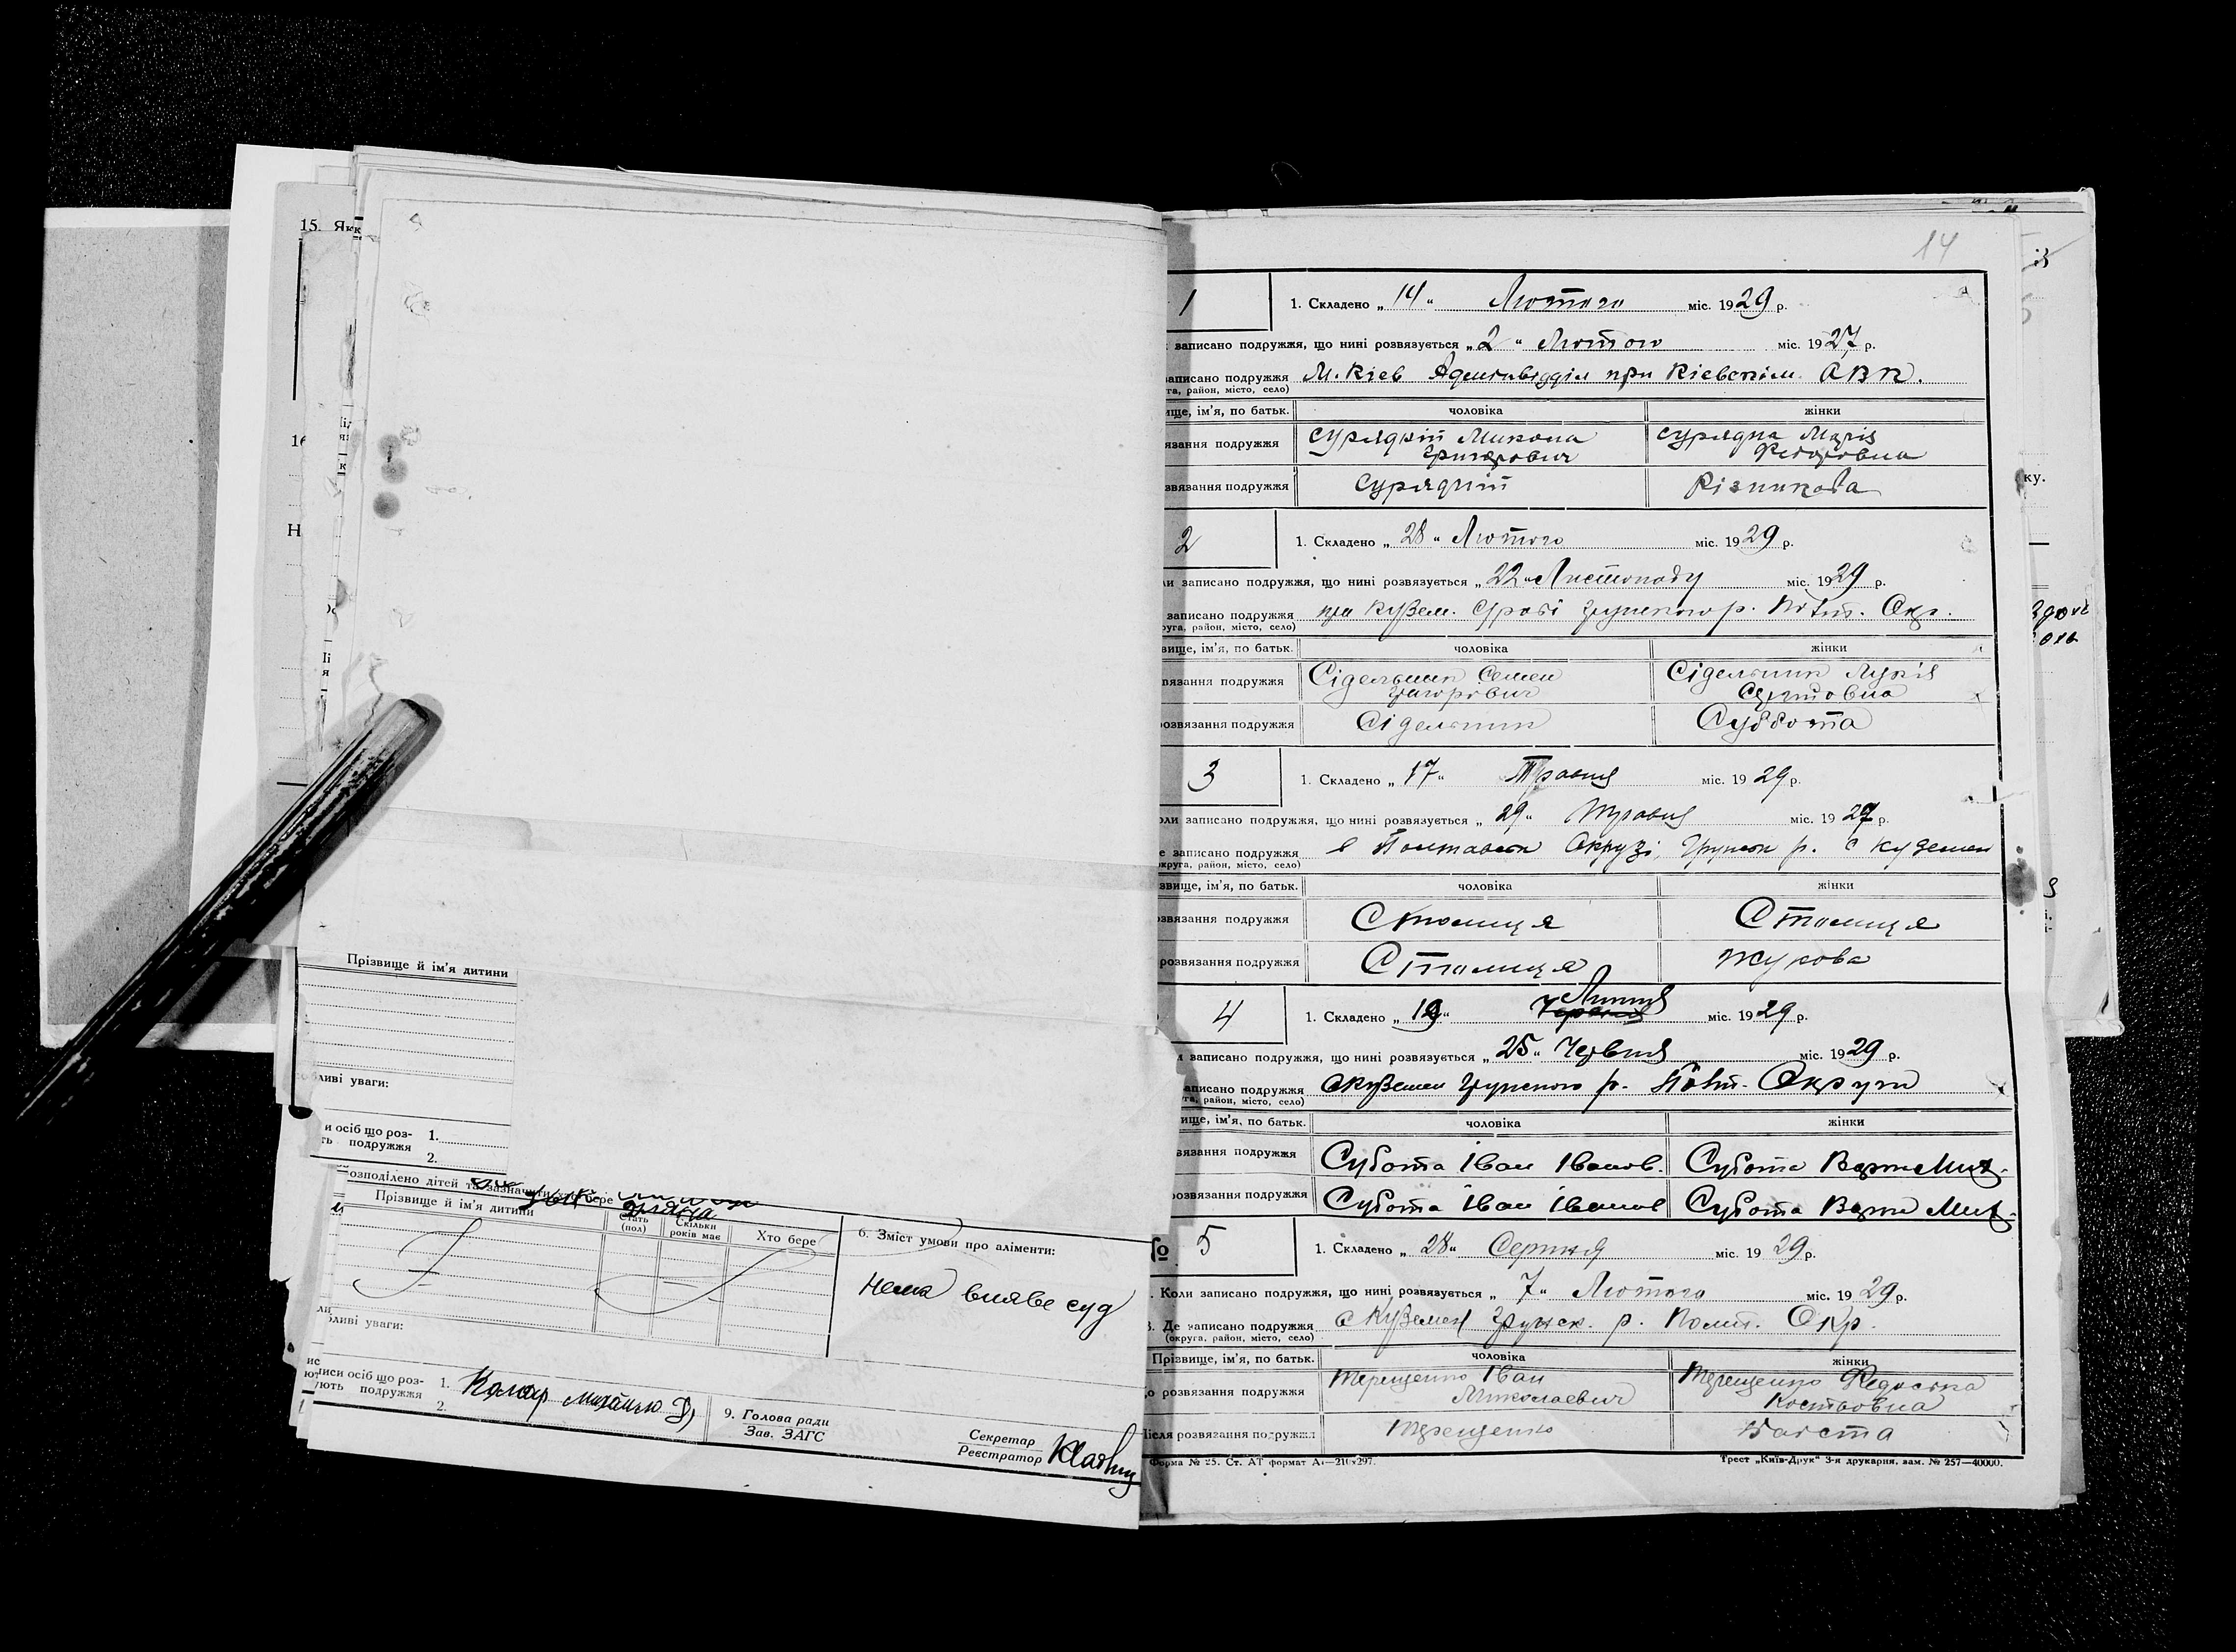 15. Якк
16
Н
Прізвище й ім'я дитини
ливі уваги:
и осіб що роз-
ть подружжя
1.
2.
озподілено дітей та зазначити хто бере
Прізвище й ім'я дитини
Стать (пол)
Скільки років має
Хто бере
6. Зміст умови про аліменти:
нема вияве суд
бливі уваги:
писи осіб що роз-
ують подружжя
1. Коляр Михайло Д
2.
9. Голова ради
Зав. ЗАГС
Секретар
Реєстратор
14
1
1. Складено „14“ Лютого міс. 1929 р.
записано подружжя, що нині розвязується „2“ Лютого міс. 1927 р.
записано подружжя М. Київ Адмінвідділ при Київськім ОВК.
га, район, місто, село)
ище, ім'я, по батьк. чоловіка жінки
язання подружжя Сурядній Микола Григорович Сурядна Марія Федоровна
звязання подружжя Сурядній Різникова
2
1. Складено „28“ Лютого міс. 1929 р.
ли записано подружжя, що нині розвязується „22“ Листопаду міс. 1929 р.
записано подружжя при Кузем. с/раді Грунського р. Полт. Окр.
руга, район, місто, село)
вище, ім'я, по батьк. чоловіка жінки
звязання подружжя Сідельник Семен Григорович Сідельник Лукія
розвязання подружжя Сідельник Суббота
3
1. Складено „17“ Травня міс. 1929 р.
оли записано подружжя, що нині розвязується „29“ Травня міс. 1927 р.
е записано подружжя в Полтавськ Окрузі, Грунськ р. с Куземен
округа, район, місто, село)
звище, ім'я, по батьк. чоловіка жінки
озвязання подружжя Столиця Столиця
розвязання подружжя Столиця Жукова
4
1. Складено „19“ Липня міс. 1929 р.
и записано подружжя, що нині розвязується „25“ Червня міс. 1929 р.
записано подружжя с Куземен Грунського р. Полт. Округи
уга, район, місто, село)
ище, ім'я, по батьк. чоловіка жінки
звязання подружжя Субота Іван Іванов. Субота Варка Мих.
розвязання подружжя Субота Іван Іванов Субота Варка Мих.
№ 5
1. Складено „28“ Серпня міс. 1929 р.
. Коли записано подружжя, що нині розвязується „7“ Лютого міс. 1929 р.
3. Де записано подружжя с Куземен Грунськ. р. Полт. Окр.
(округа, район, місто, село)
Прізвище, ім'я, по батьк. чоловіка жінки
о розвязання подружжя Терещенко Іван Миколаевич Терещенко Федоська Костьовна
Після розвязання подружжя Терещенко
Форма № 25. Ст. АТ формат А4—210x297.
Трест „Київ-Друк“ 3-я друкарня, зам. № 257—40000.
ку.